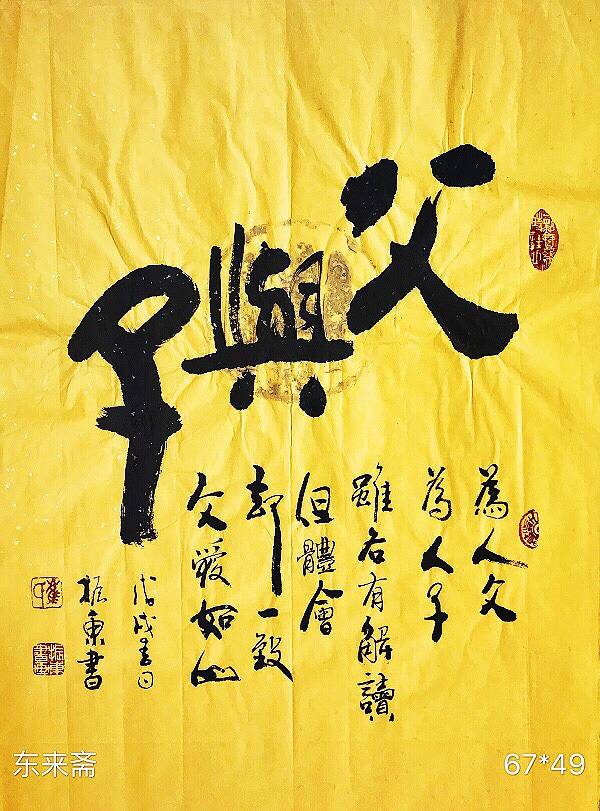 父與子
為人父
為人子
雖各有解讀
但體會
却一致
父愛如山
戊戌春日
振東書
东来斋
67*49